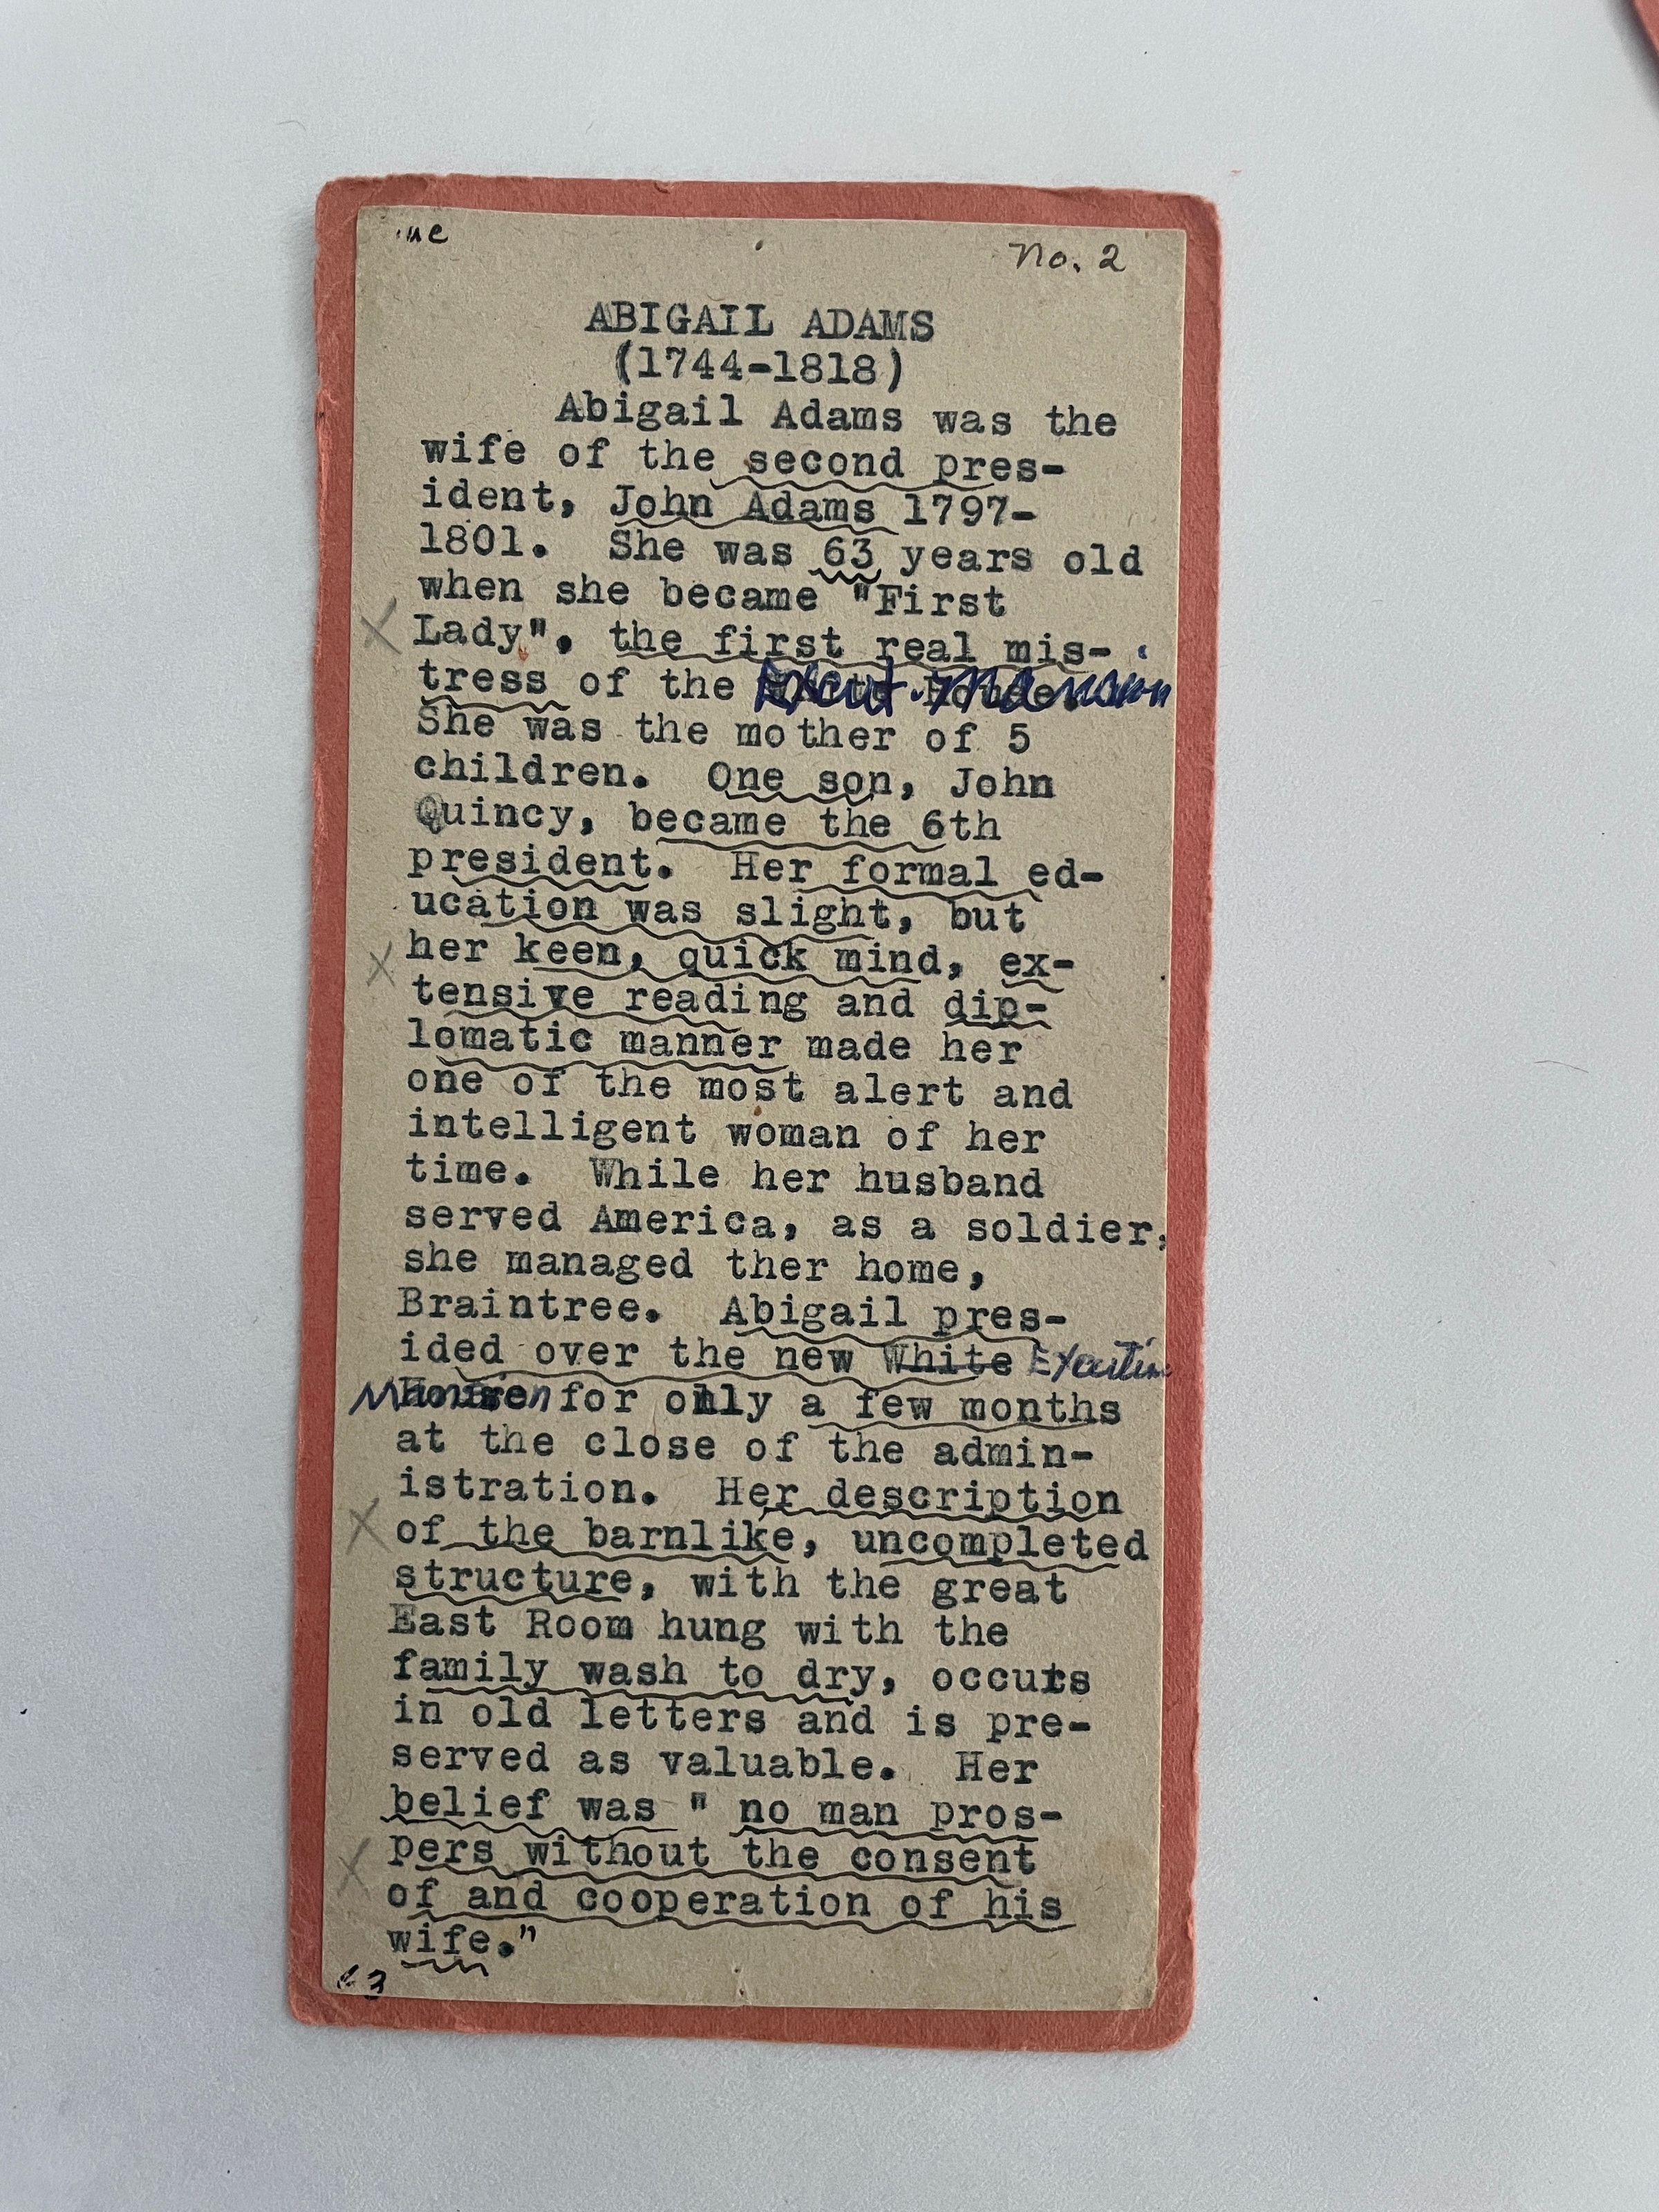 No. 2
ABIGAIL ADAMS
(1744-1818)
Abigail Adams was the
wife of the second pres-
ident, John Adams 1797-
1801. She was 63 years old
when she became "First
Lady", the first real mis-
tress of the Exect. Mansion
She was the mother of 5
children. One son, John
Quincy, became the 6th
president. Her formal ed-
ucation was slight, but
her keen, quick mind, ex-
tensive reading and dip-
lomatic manner made her
one of the most alert and
intelligent woman of her
time. While her husband
served America, as a soldier,
she managed ther home,
Braintree. Abigail pres-
ided over the new White Executive
Mansion for only a few months
at the close of the admin-
istration. Her description
of the barnlike, uncompleted
structure, with the great
East Room hung with the
family wash to dry, occurs
in old letters and is pre-
served as valuable. Her
belief was " no man pros-
pers without the consent
of and cooperation of his
wife."